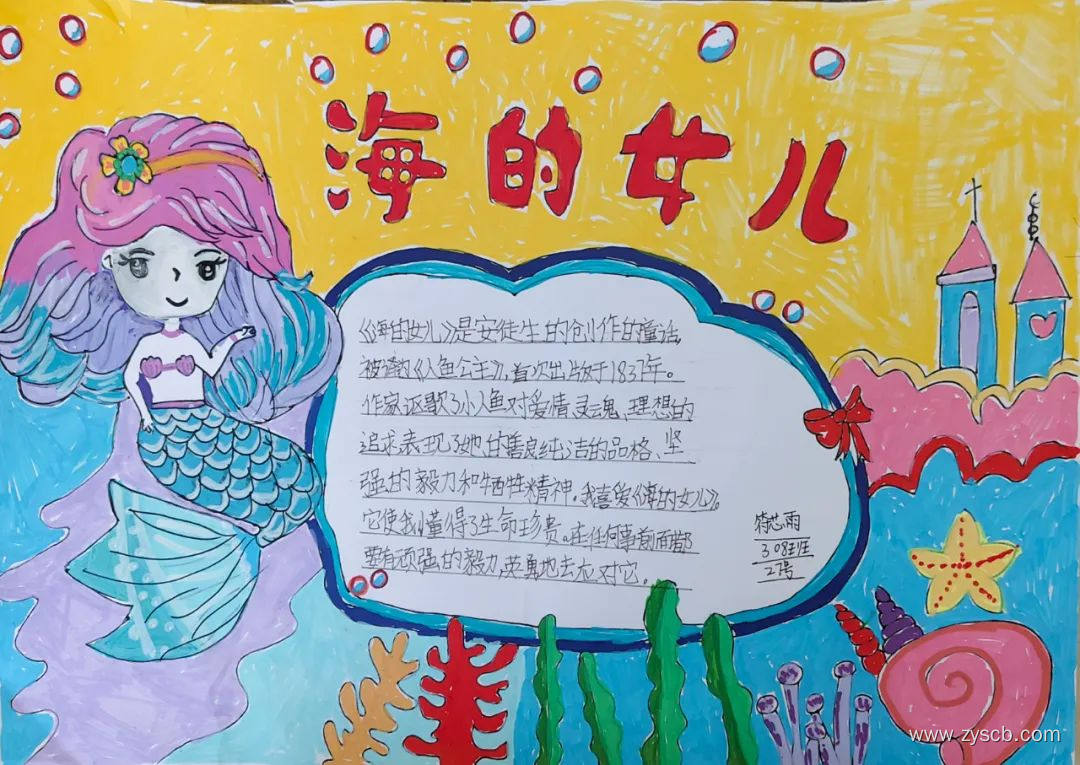 海的女儿
《海的女儿》是安徒生的创作的童话,
被译为《人鱼公主》,首次出版于1837年。
作家讴歌了小人鱼对爱情、灵魂、理想的
追求表现了她,甘善良纯洁的品格、坚
强的毅力和牺牲精神。我喜爱《海的女儿》。
它使我懂得了生命珍贵。在任何事前面都
要有顽强的毅力,英勇地去应对它。
符芯雨
308班
27号
www.zyscb.com